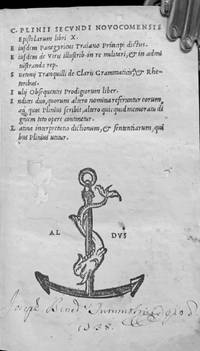 C. PLINII SECVNDI NOVOCOMENSIS
Epistolarum libri X.
Eiusdem Panegyricus Traiano Principi dictus.
Eiusdem de Viris illustrib. in re militari, & in admi
nistranda rep.
Suetonij Tranquilli de Claris Grammaticis, & Rhe
toribus.
Iulij Obsequentis Prodigiorum liber.
Indices duo, quorum altero nomina referuntur eorum,
ad quos Plinius scribit, altero quicquid memoratu di
gnum toto opere continetur.
Latina interpretatio dictionum, & sententiarum, qui
bus Plinius utitur.
AL DVS
Joseph